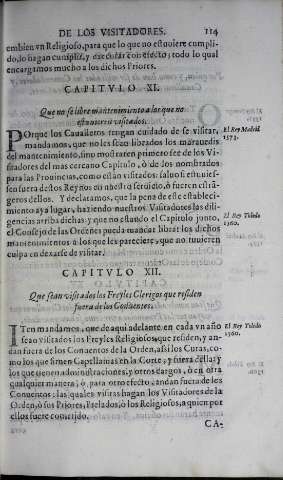 DE LOS VISITADORES. 114
embien vn Religioso, para que lo que no estouiere cumpli-
do, lo hagan cumplir, y executar con efecto; todo lo qual
encargamos mucho a los dichos Priores.
CAPITVLO XI.
Que no se libre mantenimiento a los que no
estuuieren visitados.
Porque los Caualleros tengan cuidado de se visitar,
El Rey Madrid
1573.
mandamos, que no les sean librados los marauedis
del mantenimiento, sino mostraren primero fee de los Vi-
sitadores del mas cercano Capitulo, ò de los nombrados
para las Prouincias, como están visitados: saluo si estuuies-
sen fuera destos Reynos en nuestro seruicio, ò fueren estrã-
geros dellos. Y declaramos, que la pena de este estableci-
miento aya lugar, haziendo nuestros Visitadores las dili-
gencias arriba dichas: y que no estando el Capitulo junto,
El Rey Toledo
1560.
el Consejo de las Ordenes pueda mandar librar los dichos
mantenimientos à los que les pareciere, que no tuuieron
culpa en dexarse de visitar.
CAPITVLO XII.
Que sean visitados los Freyles Clerigos que residen
fuera de los Conuentos.
ITen mandamos, que de aqui adelante en cada vn año
El Rey Toledo
1560.
sean visitados los Freyles Religiosos, que residen, y an-
dan fuera de los Conuentos de la Orden, assi los Curas, co-
mo los que siruen Capellanias en la Corte, y fuera della; y
los que tienen administraciones, y otros cargos, ò en otra
qualquier manera; ò para otro efecto andan fuera de los
Conuentos: las quales visitas hagan los Visitadores de la
Orden, ò sus Priores, Prelados, ò los Religiosos, a quien por
ellos fuere cometido.
CA-